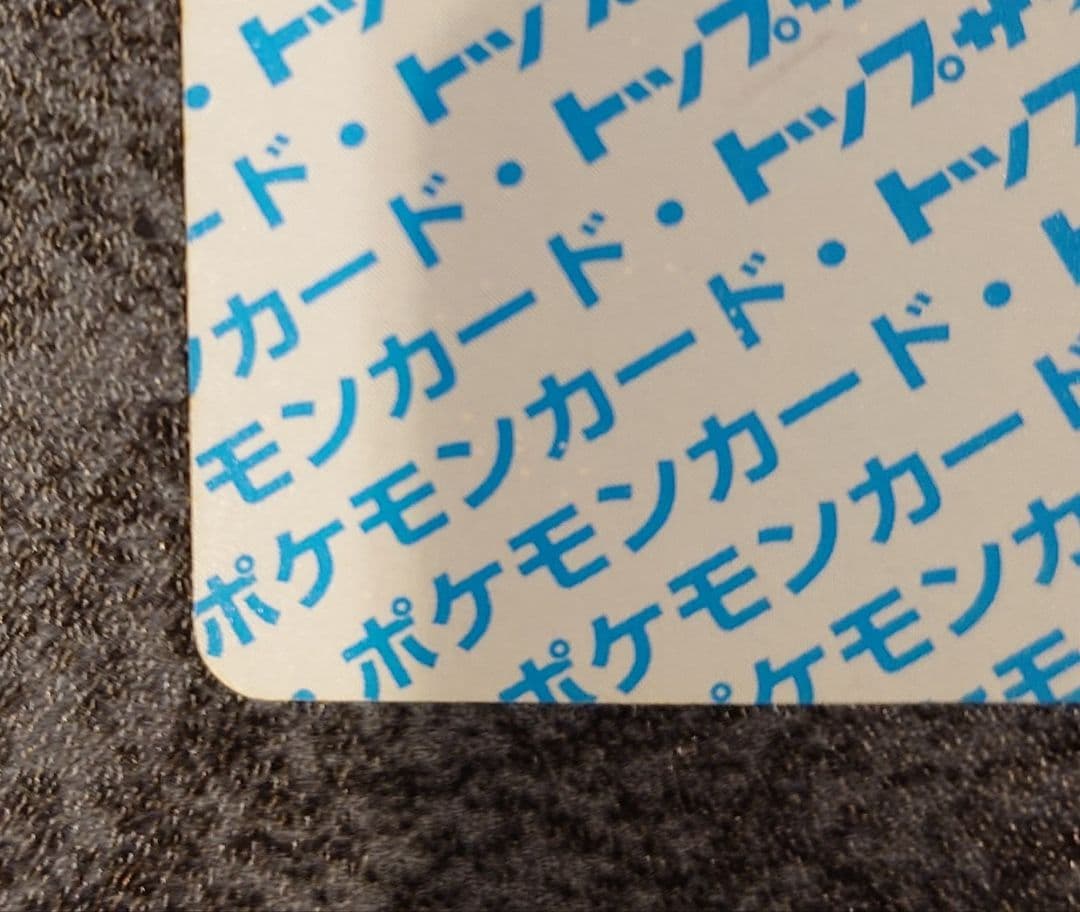 ・トッ
ード・トップ
ンカード・トップサ
モンカード・トップサ
ポケモンカード・トップ
ポケモンカード・ト
ポケモンカード
ポケモンカ
モ